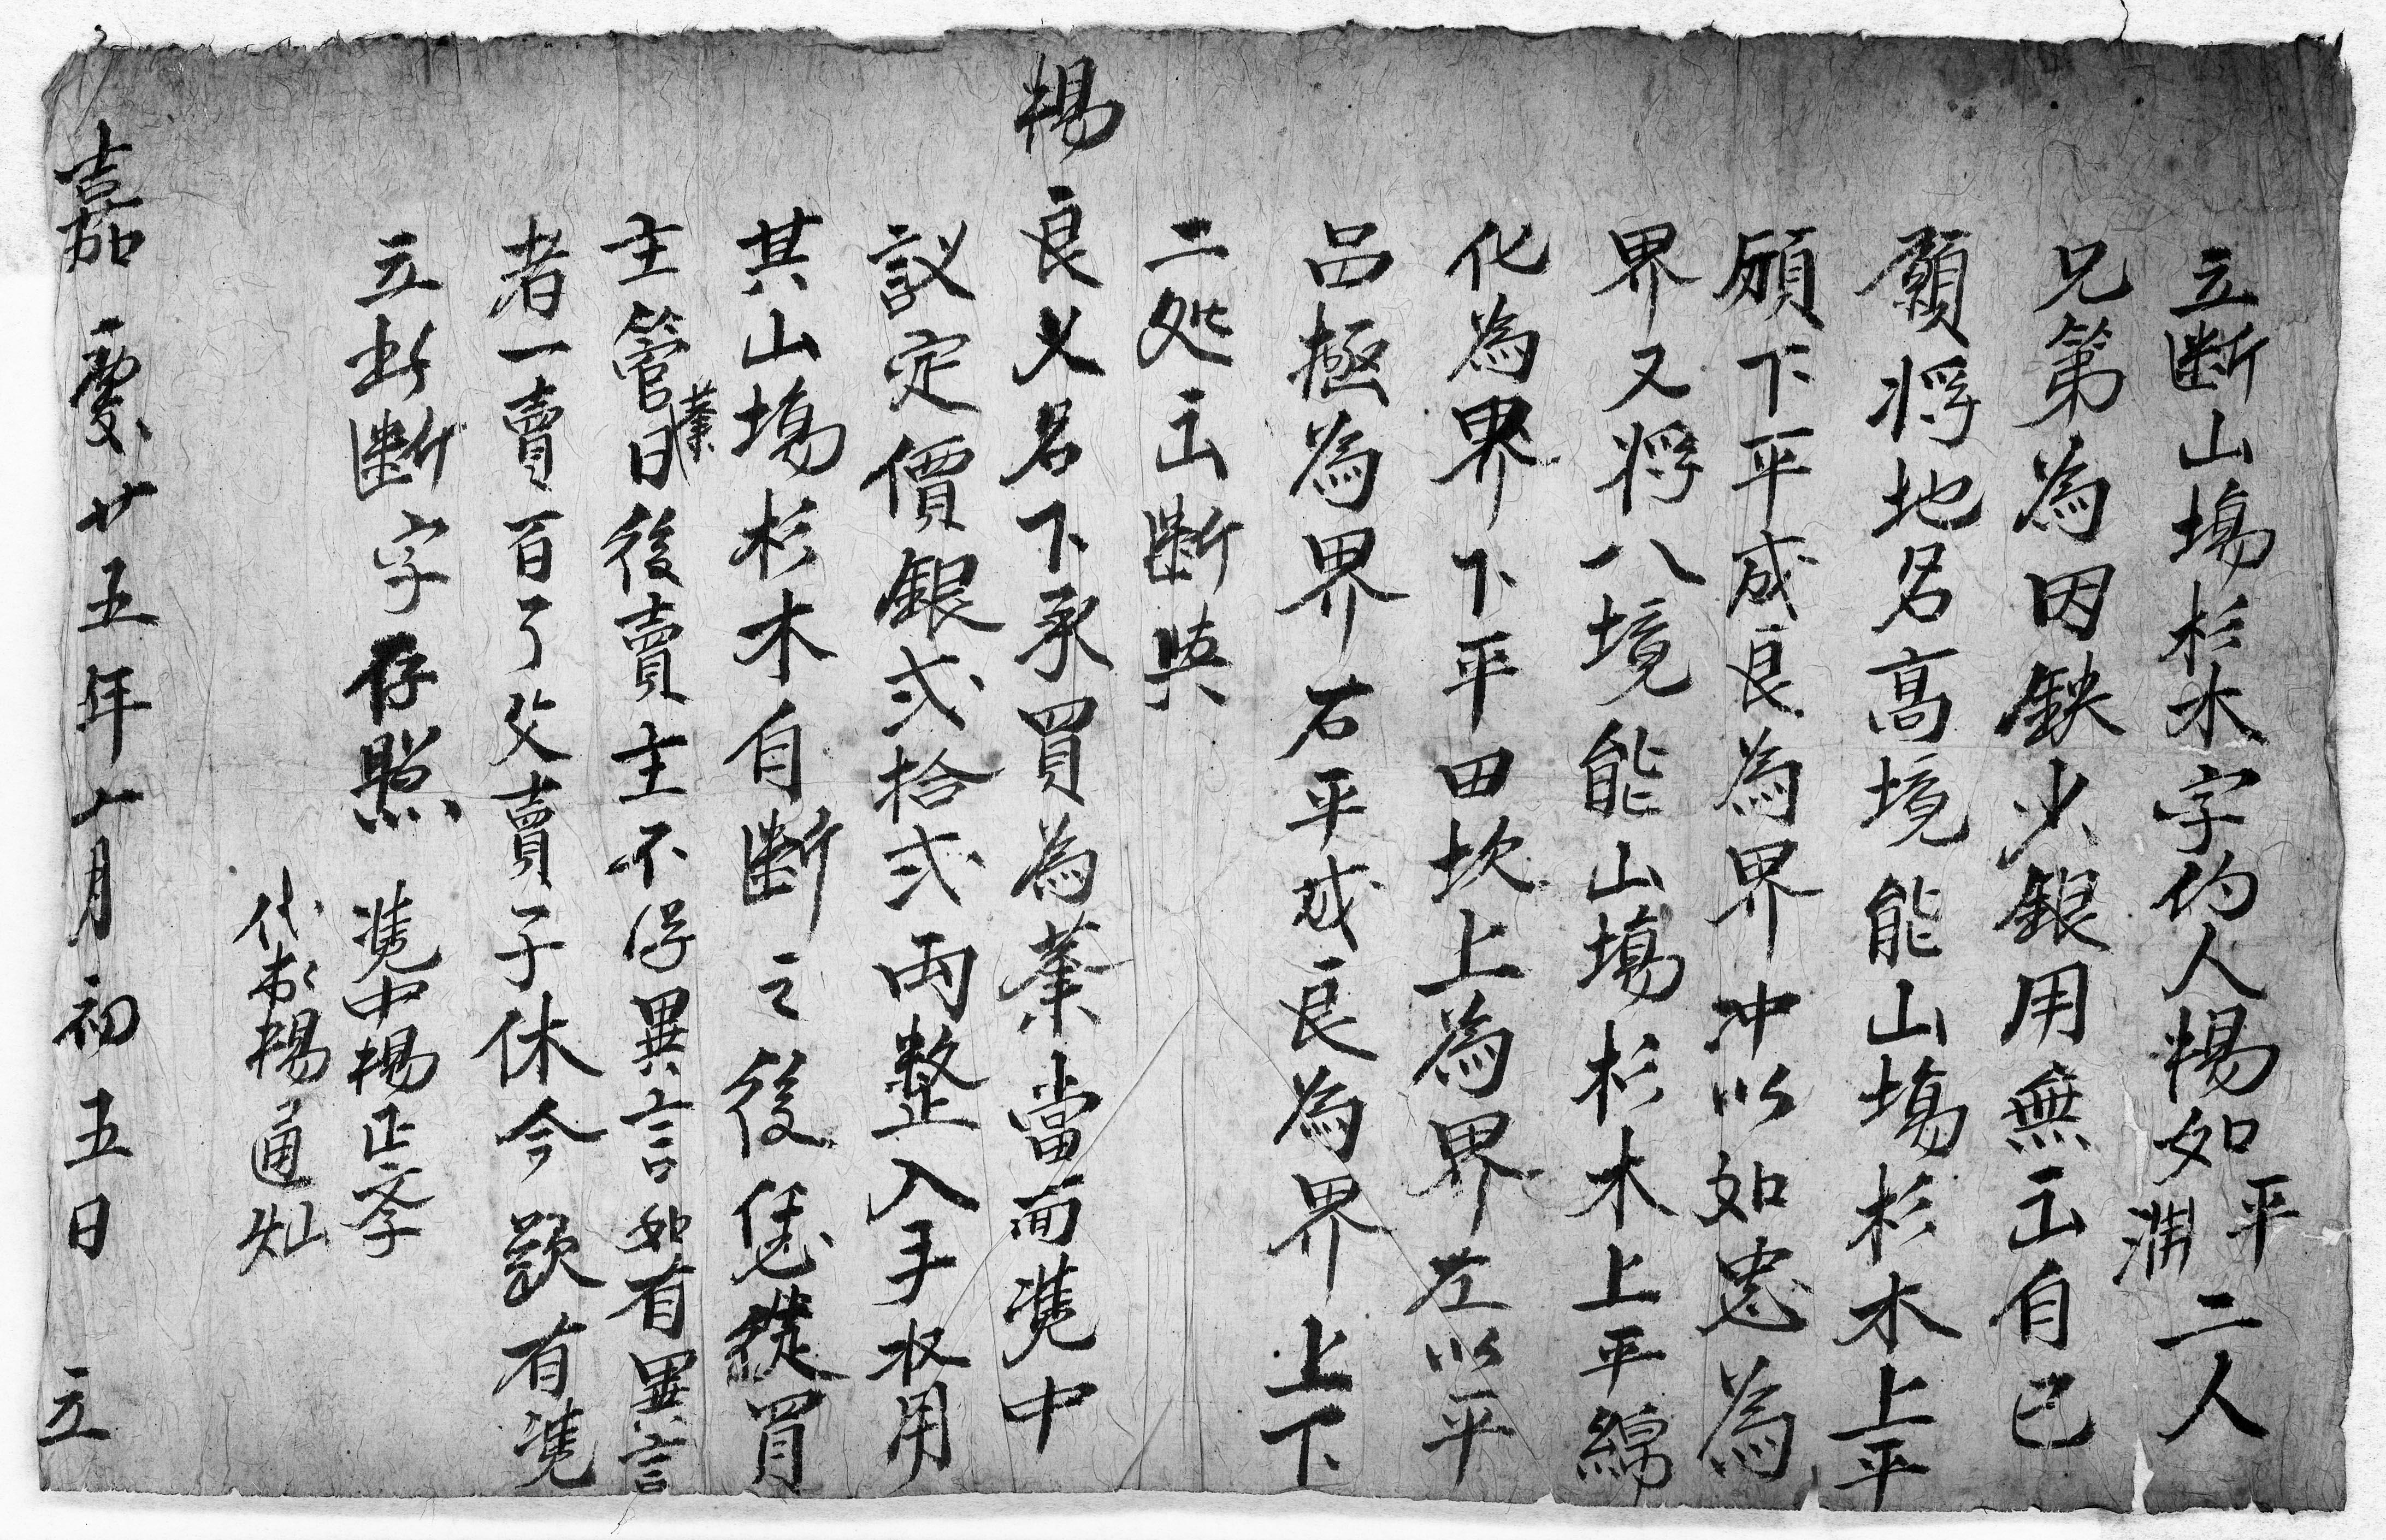 立断山塲杉木字約人楊如平潤二人
兄第為因缺少銀用無出自己
願將地名高境能山塲杉木上平
頋下平成良為界冲以如忠為
界又將八境能山塲杉木上平綿
化為界下平田坎上為界左以平
品極為界右平成良為界上下
二処出断與
楊良义名下承買為業當面凴中
議定價銀弍拾弍両整入手收用
其山塲杉木自断之後恁從買
主管業日後賣主不得異言如有異言
者一賣百了父賣子休今欲有凴
立此断字存照 凴中楊正孝
代書楊通灿
嘉慶廿五年七月初五日 立